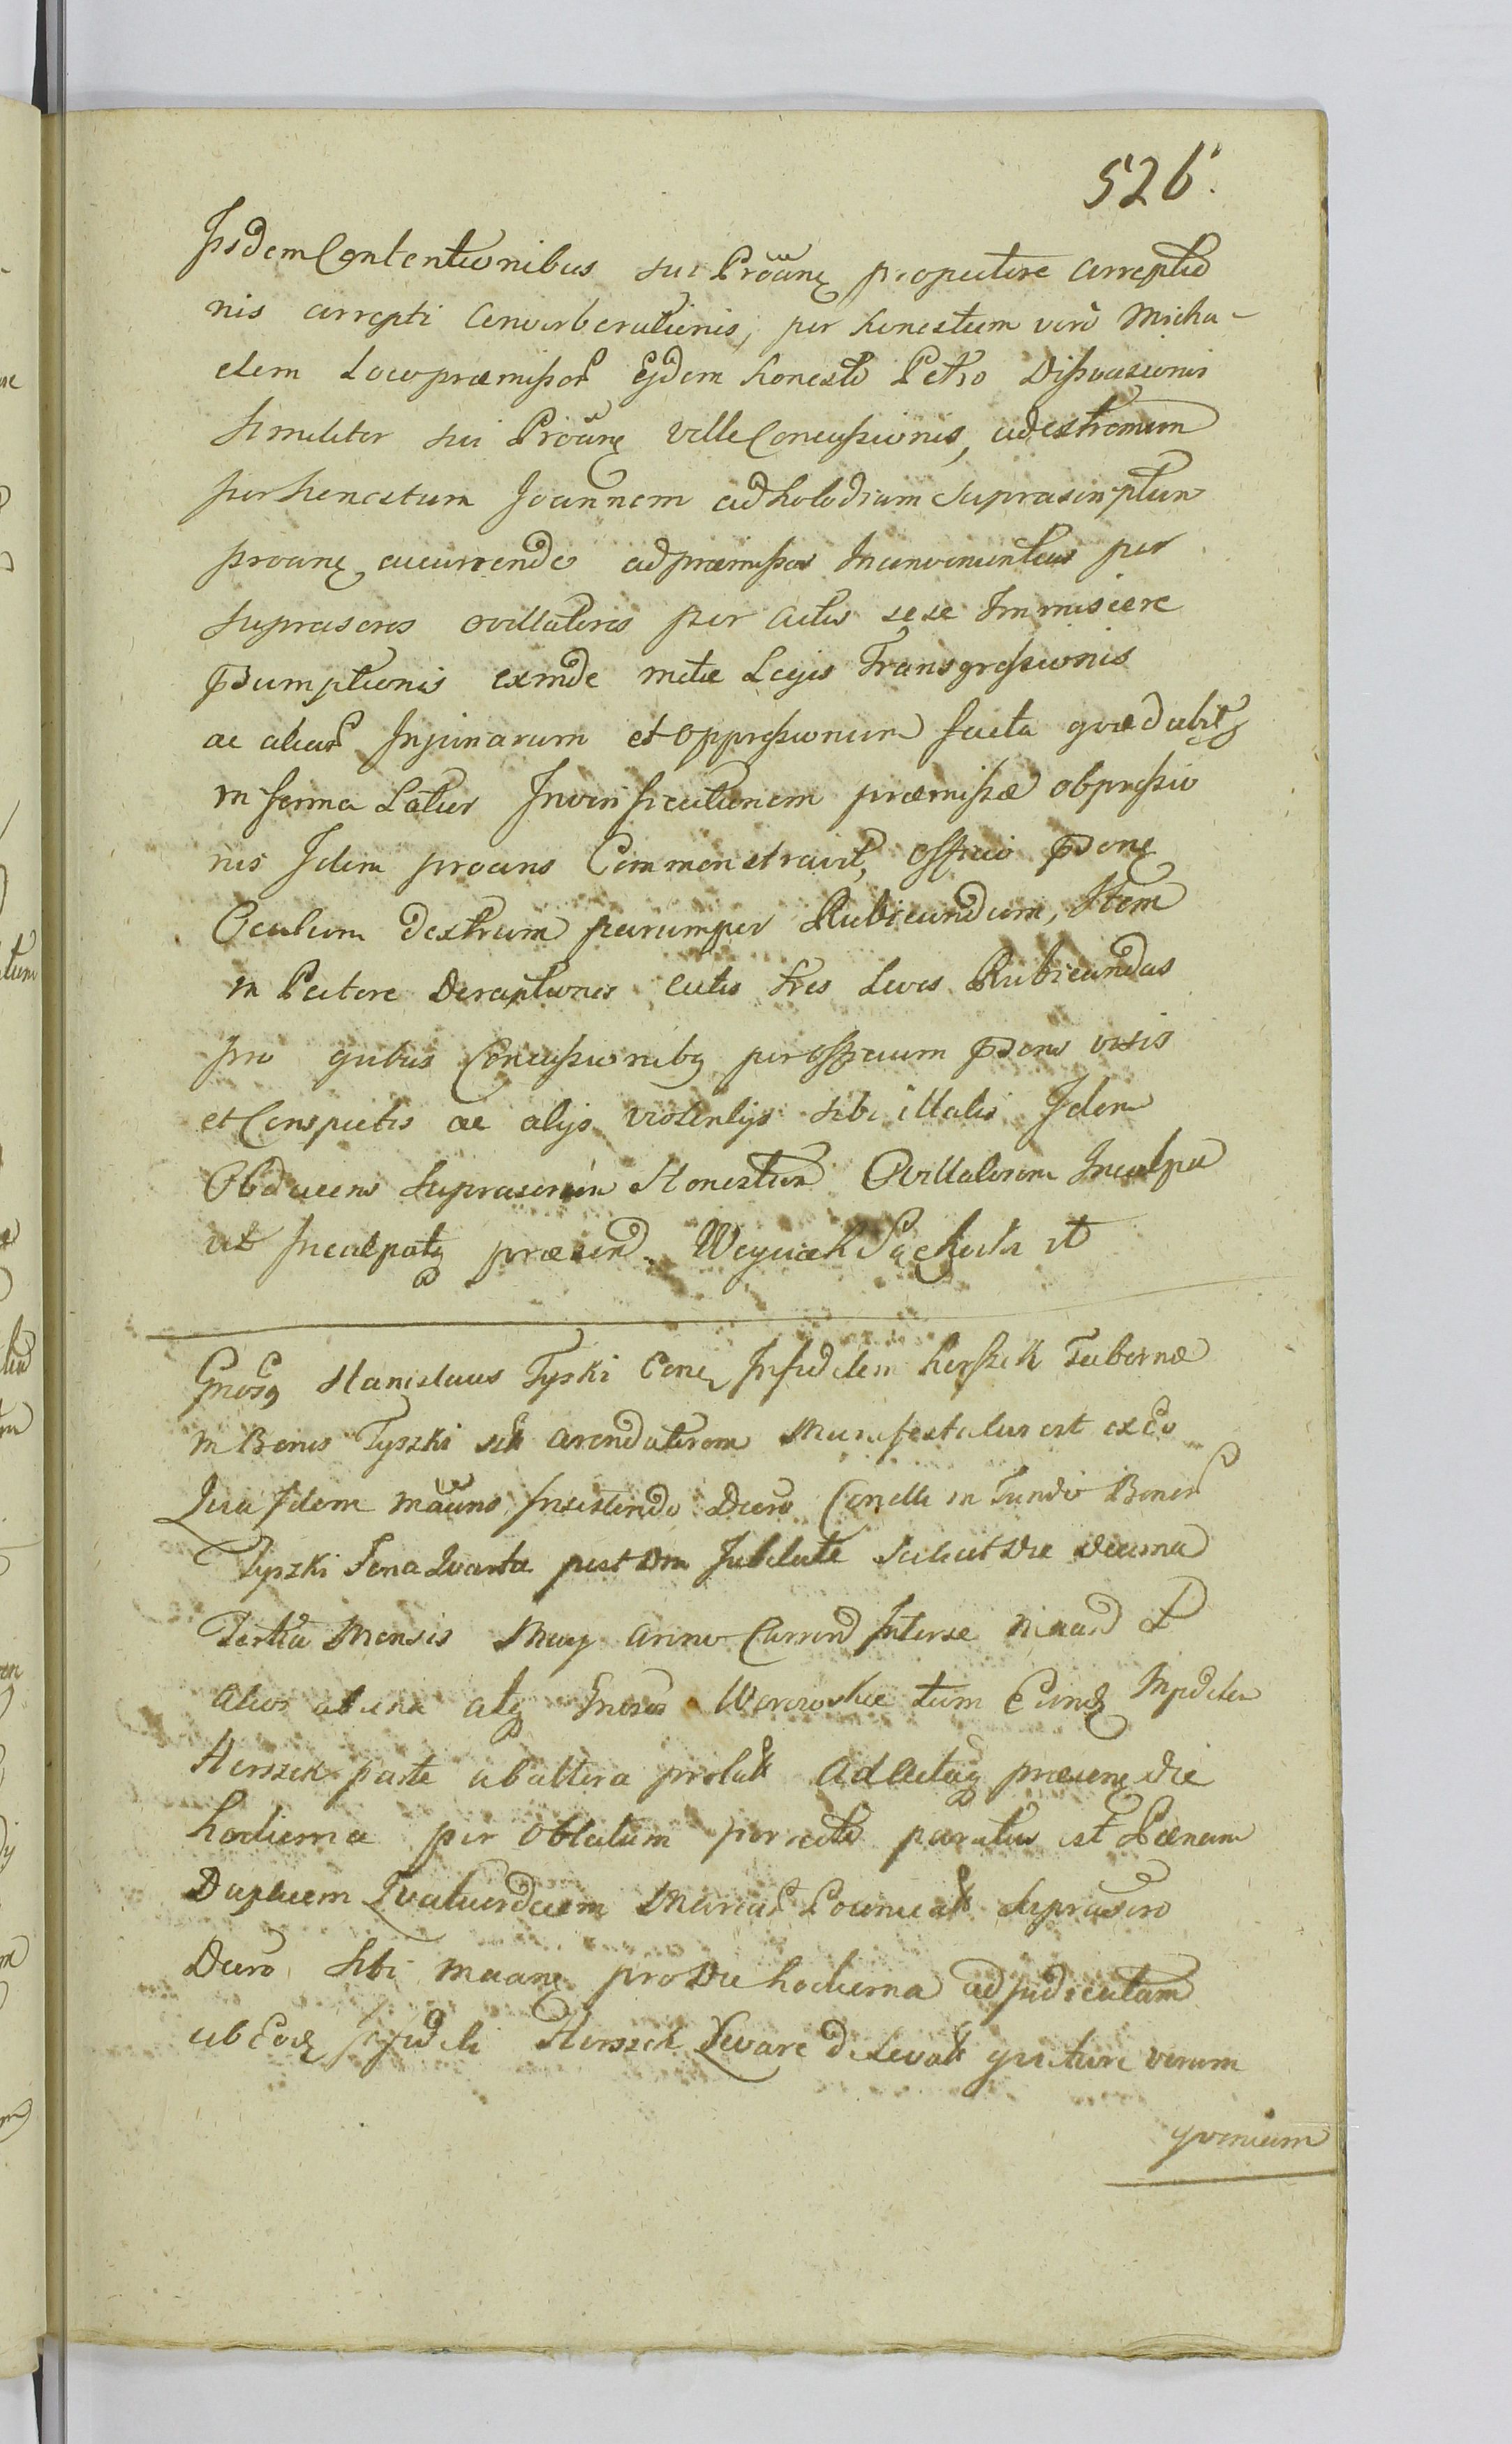 526.
Iisdem Contentionibus sui Proanẽ propectore arreptio
nis arrepti Converberationis, per honestum vero Micha-
elem Loco præmissor Ejdem honesto Petro Dissuasionis
Similiter sui Proanẽ velle Concussionis, ad extremum
per honestum Joannem ad holodium suprascriptum
proanẽ accurrendo ad præmissa Inconvenientias per
suprascros ovillatores per actis sese Immiscere
Psumptionis exinde metæ Legis Transgressionis
ac aliar Injuriarum et oppressionum facta quæ dubitẓ
in forma Latior In verificationem præmissæ obpressio
nis Idem proans Commonstravit, officio Psonẽ
Oculum dextrum parumper Rubicundum, Item
in Pectore Deraptionis cutis tres leves Rubicundas
pro quibus Concussionibẓ per officium Psens visis
et Conspectis ac alijs violentijs sibi illatis Idem
Obducens suprascrum Honestum Ovillatorem Inculpa
vit Inculpatẓ præsens. Woyciech Pachuta it
Gnosẓ Stanislaus Tyski Conẽ Infidelem herszek Tabernæ
in Bonis Tyszki sik arendatorem Manifestatus est ex Eo
Quia Idem mãnns Insistendo Decro Condli in Fundo Bonor
Tyszki Feria Quarta post Dm Jubilate Scilicet die decima
Tertia Mensis Maij anno Curren Inter se maan et
alios ab una atẓ Gnosos Worowskie tum Eundẓ Infidelem
Herszek parte ab altera prolat ad Actaẓ præsenẽ die
hodierna per oblatum porrecto paratus est Pænam
Duplicem Quatuordecem Marcar Pecuniat Suprascro
Decro Sibi maanẽ pro die hodierna adjudicatam
ab Eodẓ Infideli Herszek Levare d Levat quietare verum
qvoniam